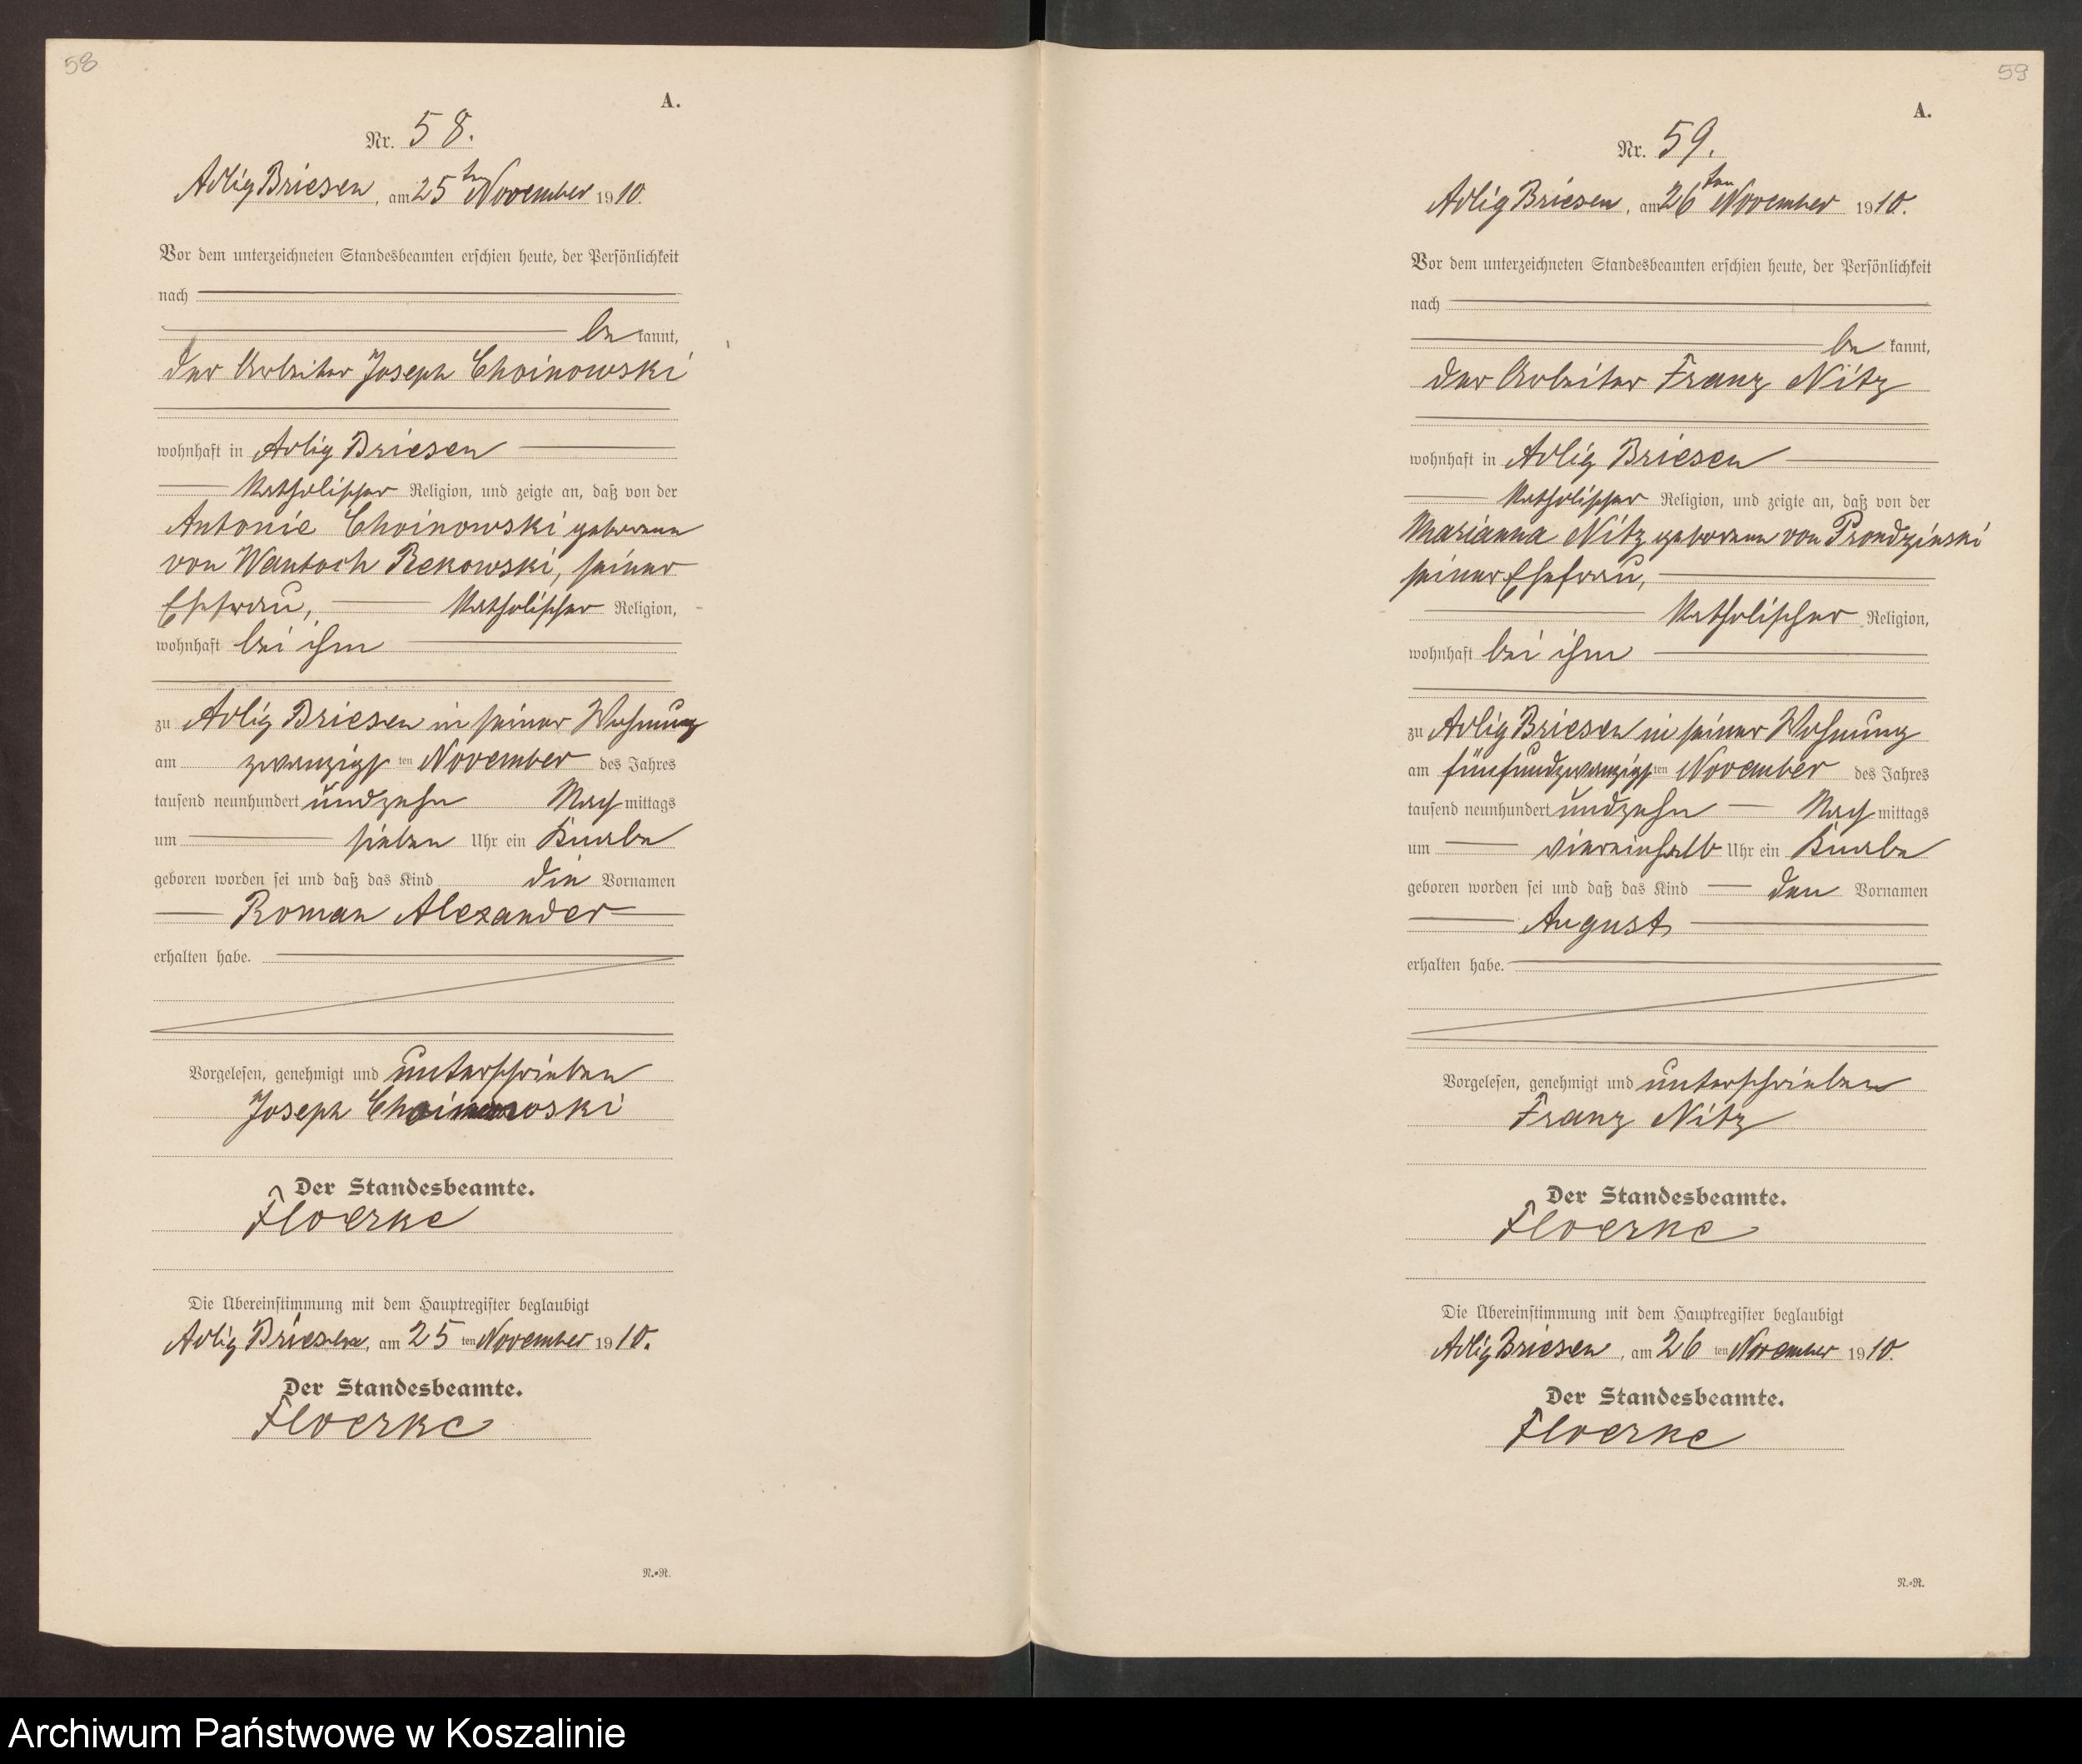 58
A.
Nr. 58.
Adlig Briesen, am 25ten November 1910.
Vor dem unterzeichneten Standesbeamten erschien heute, der Persönlichkeit
nach
be kannt,
der Arbeiter Joseph Choinowski
wohnhaft in Adlig Briesen
katholischer Religion, und zeigte an, daß von der
Antonie Choinowski geborenen
von Wantoch Rekowski, seiner
Ehefrau, katholischer Religion,
wohnhaft bei ihm
zu Adlig Briesen in seiner Wohnung
am zwanzigsten November des Jahres
tausend neunhundert undzehn Nachmittags
um sieben Uhr ein Knabe
geboren worden sei und daß das Kind die Vornamen
Roman Alexander
erhalten habe.
Vorgelesen, genehmigt und unterschrieben
Joseph Choinowski
Der Standesbeamte.
Floerke
Die Übereinstimmung mit dem Hauptregister beglaubigt
Adlig Briesen, am 25ten November 1910.
Der Standesbeamte.
Floerke
N.=R.
59
A.
Nr. 59.
Adlig Briesen, am 26ten November 1910.
Vor dem unterzeichneten Standesbeamten erschien heute, der Persönlichkeit
nach
be kannt,
der Arbeiter Franz Nitz
wohnhaft in Adlig Briesen
katholischer Religion, und zeigte an, daß von der
Marianna Nitz geborenen von Prondzinski
seiner Ehefrau,
katholischer Religion,
wohnhaft bei ihm
zu Adlig Briesen in seiner Wohnung
am fünfundzwanzigsten November des Jahres
tausend neunhundert undzehn Nachmittags
um viereinhalb Uhr ein Knabe
geboren worden sei und daß das Kind den Vornamen
August
erhalten habe.
Vorgelesen, genehmigt und unterschrieben
Franz Nitz
Der Standesbeamte.
Floerke
Die Übereinstimmung mit dem Hauptregister beglaubigt
Adlig Briesen, am 26ten November 1910.
Der Standesbeamte.
Floerke
N.=R.
Archiwum Państwowe w Koszalinie